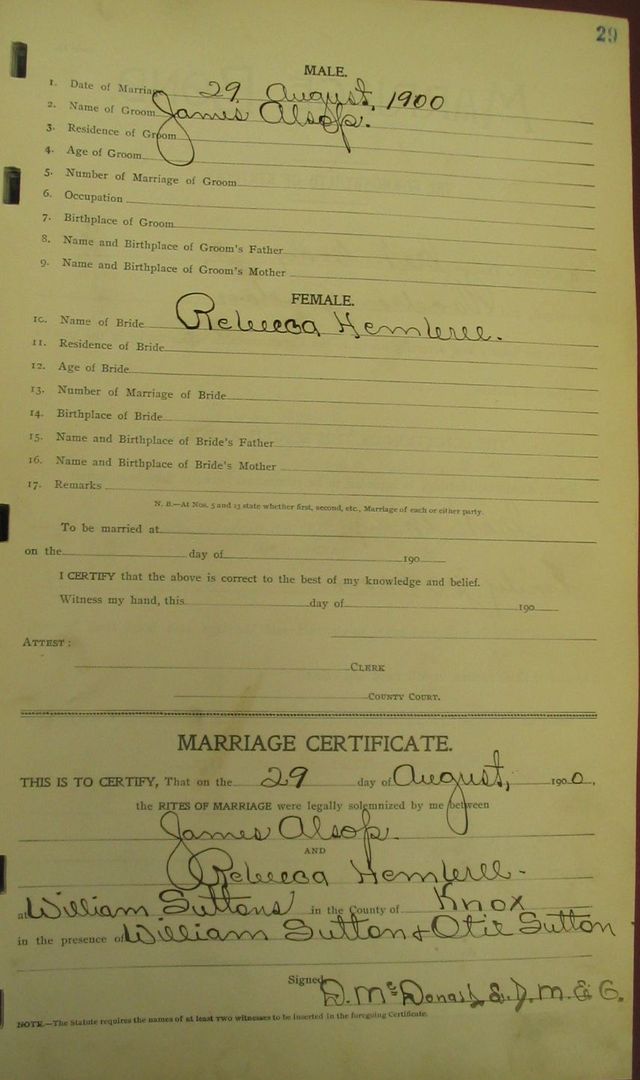 29
MALE.
1. Date of Marriage 29 August, 1900
2. Name of Groom James Alsop.
3. Residence of Groom
4. Age of Groom
5. Number of Marriage of Groom
6. Occupation
7. Birthplace of Groom
8. Name and Birthplace of Groom's Father
9. Name and Birthplace of Groom's Mother
FEMALE.
10. Name of Bride Rebecca Hembree.
11. Residence of Bride
12. Age of Bride
13. Number of Marriage of Bride
14. Birthplace of Bride
15. Name and Birthplace of Bride's Father
16. Name and Birthplace of Bride's Mother
17. Remarks
N. B.—At Nos. 5 and 13 state whether first, second, etc., Marriage of each or either party.
To be married at
on the day of 190
I CERTIFY that the above is correct to the best of my knowledge and belief.
Witness my hand, this day of 190
ATTEST:
CLERK
COUNTY COURT.
MARRIAGE CERTIFICATE.
THIS IS TO CERTIFY, That on the 29 day of August, 1900,
the RITES OF MARRIAGE were legally solemnized by me between
James Alsop.
AND
Rebecca Hembree-
at William Suttons' in the County of Knox
in the presence of William Sutton & Otie Sutton
Signed D. M. &
NOTE.—The Statute requires the names of at least two witnesses to be inserted in the foregoing Certificate.